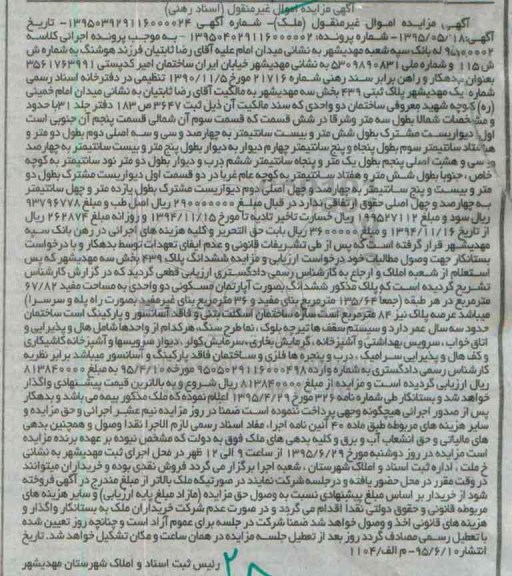 آگهی مزایده اموال غیرمنقول (اسناد رهنی)
آگهی مزایده اموال غیرمنقول (ملک)- شماره آگهی ۱۳۹۵۰۳۹۲۹۱۱۶۰۰۰۰۲۴- تاریخ
آگهی:۱۳۹۵/۰۵/۱۸- شماره پرونده: ۱۳۹۵۰۴۰۲۹۱۱۶۰۰۰۰۰۲ - به موجب پرونده اجرائی کلاسه
له بانک سپه شعبه مهدیشهر به نشانی میدان امام علیه آقای رضا ثابتیان فرزند هوشنگ به شماره ش
ش ۱۱۵ و شماره ملی ۵۳۰۹۸۹۰۸۳۱ به نشانی مهدیشهر خیابان ایران ساختمان امیر کدپستی ۳۵۶۱۷۶۳۹۹۱
بعنوان بدهکار و راهن برابر سند رهنی شماره ۲۱۷۱۶ مورخ ۱۳۹۰/۱۱/۵ تنظیمی در دفترخانه اسناد رسمی
شماره یک مهدیشهر پلاک ثبتی ۴۳۹ بخش سه مهدیشهر به مالکیت آقای رضا ثابتیان به نشانی میدان امام خمینی
(ره) کوچه شهید معروفی ساختمان دو واحدی که سند مالکیت آن ذیل ثبت ۳۶۴۷ ص ۱۸۳ دفتر جلد ۳۱ با حدود
و مشخصات شمالا بطول سه متر وشرقا در شش قسمت که قسمت سوم آن شمالی قسمت پنجم آن جنوبی است
اول دیواریست مشترک بطول شش متر و بیست سانتیمتر به چهارصد و سی و سه اصلی دوم بطول دو متر و
هفتاد سانتیمتر سوم بطول پنجاه و پنج سانتیمتر چهارم دیوار به دیوار بطول پنج متر و بیست سانتیمتر به چهارصد
و سی و هشت اصلی پنجم بطول یک متر و پنجاه سانتیمتر ششم درب و دیوار بطول دو متر نود سانتیمتر به کوچه
خاص، جنوبا بطول شش متر و هفتاد سانتیمتر به کوچه عام غربا در دو قسمت اول دیواریست مشترک بطول دو
متر و بیست و پنج سانتیمتر به چهارصد و چهل اصلی دوم دیواریست مشترک بطول یازده متر و چهل سانتیمتر
به چهارصد و چهل اصلی حقوق ارتفاقی ندارد در قبال مبلغ ۲۹۰۰۰۰۰۰۰ ریال اصل طلب و مبلغ ۹۳۷۹۶۷۷۸
ریال سود و مبلغ ۱۹۹۵۲۷۱۱۲ ریال خسارت تاخیر تادیه تا مورخ ۱۳۹۴/۱۱/۱۵ و روزانه مبلغ ۲۶۲۸۷۴ ریال
از تاریخ ۱۳۹۴/۱۱/۱۶ و مبلغ ۳۶۰۰۰۰۰ ریال بابت حق التحریر و کلیه هزینه های اجرائی در رهن بانک سپه
مهدیشهر قرار گرفته است که پس از طی تشریفات قانونی و عدم ایفای تعهدات توسط بدهکار و با درخواست
بستانکار جهت وصول مطالبات خود درخواست ارزیابی و مزایده ششدانگ پلاک ۴۳۹ بخش سه مهدیشهر که پس
استعلام از شعبه املاک و ارجاع به کارشناس رسمی دادگستری ارزیابی قطعی گردید که در گزارش کارشناس
تشریح گردیده است که پلاک مذکور ششدانگ بصورت آپارتمان مسکونی دو واحدی به مساحت مفید ۶۷/۸۲
مترمربع در هر طبقه (جمعا ۱۳۵/۶۴ مترمربع بنای مفید و ۳۶ مترمربع بنای غیرمفید بصورت راه پله و سرسرا)
میباشد عرصه پلاک نیز ۸۴ مترمربع است سازه ساختمان اسکلت بتنی و فاقد آسانسور و پارکینگ است ساختمان
حدود سه سال عمر دارد و سیستم سقف ها تیرچه بلوک، نما طرح سنگ، هرکدام از واحدها شامل هال و پذیرایی و
اتاق خواب، سرویس بهداشتی و آشپزخانه، گرمایش بخاری،سرمایش کولر، دیوار سرویسها و آشپزخانه کاشیکاری
و کف هال و پذیرایی سرامیک، درب و پنجره ها فلزی و ساختمان فاقد پارکینگ و آسانسور میباشد برابر نظریه
کارشناس رسمی دادگستری به شماره وارده ۹۵۰۵۰۲۹۱۱۶۰۰۰۴۹۸ مورخه ۹۵/۴/۱۰ به مبلغ ۸۱۳۸۴۰۰۰۰
ریال ارزیابی گردیده است و مزایده از مبلغ ۸۱۳۸۴۰۰۰۰ ریال شروع و به بالاترین قیمت پیشنهادی واگذار
خواهد شد و بستانکار طی شماره نامه ۳۲۶ مورخ ۱۳۹۵/۴/۲۹ اعلام نموده که ملک مذکور بیمه می باشد و بدهکار
پس از صدور اجرائی هیچگونه وجهی پرداخت ننموده است ضمنا در روز مزایده نیم عشر اجرائی و حق مزایده و
سایر هزینه های مربوطه طبق ماده ۴۰ آئین نامه اجرا، مفاد اسناد رسمی لازم الاجرا نقدا وصول و همچنین بدهی
های مالیاتی و حق انشعاب آب و برق و کلیه بدهی های ملک فوق به دولت که مشخص نبوده بر عهده برنده مزایده
است مزایده در روز دوشنبه مورخ ۱۳۹۵/۶/۲۹ از ساعت ۹ الی ۱۲ ظهر در محل اجرای ثبت مهدیشهر به نشانی
خ ملت، اداره ثبت اسناد و املاک شهرستان، شعبه اجرا برگزار می گردد فروش نقدی بوده و خریداران میتوانند
در وقت مقرر در محل حضور یافته و درجلسه شرکت نمایند در صورتیکه ملک بالاتر از مبلغ مندرج در آگهی فروخته
شود از خریدار بر اساس مبلغ پیشنهادی نسبت به وصول حق مزایده (مازاد مبلغ پایه ارزیابی) و سایر هزینه های
مربوطه قانونی و حقوق دولتی نقدا اقدام می گردد و در صورت عدم شرکت خریداران ملک به بستانکار واگذار و
هزینه های قانونی اخذ و وصول خواهد شد ضمنا شرکت در جلسه برای عموم آزاد است و چنانچه روز تعیین شده
با تعطیل رسمی مصادف گردد روز بعد از تعطیل جلسه مزایده در همان ساعت و مکان تشکیل خواهد شد. تاریخ
انتشار: ۹۵/۶/۱۰- م الف/۱۱۰۴
رئیس ثبت اسناد و املاک شهرستان مهدیشهر